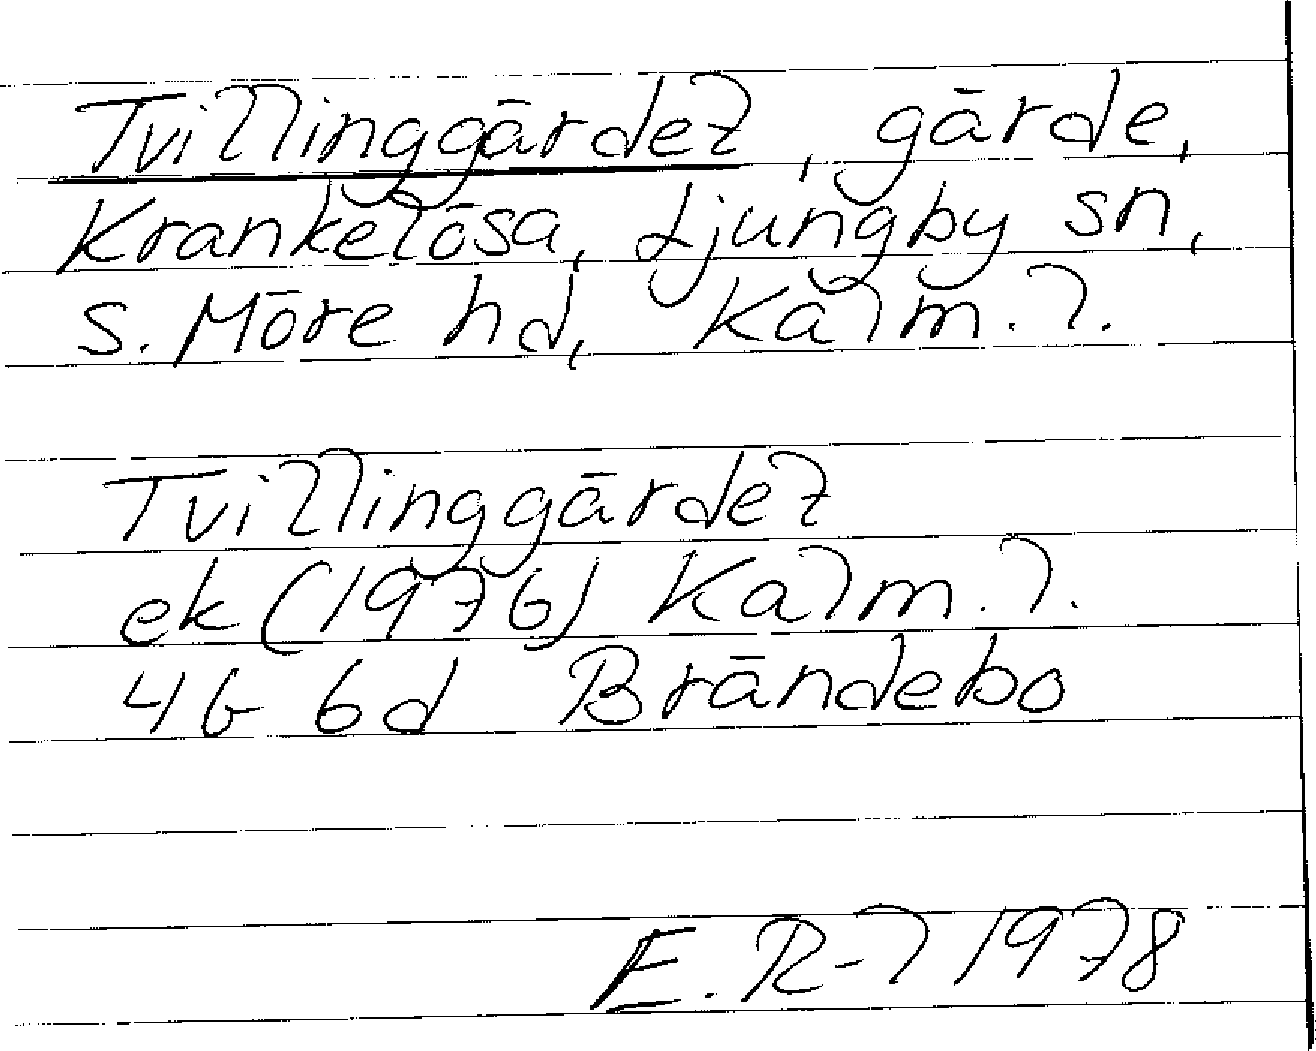 Tvillinggärdet, gärde,
Krankelösa, Ljungby sn,
S. Möre hd, Kalm. l.
Tvillinggärdet
ek (1976) Kalm. l.
4G 6d Brändebo
E. R-l 1978